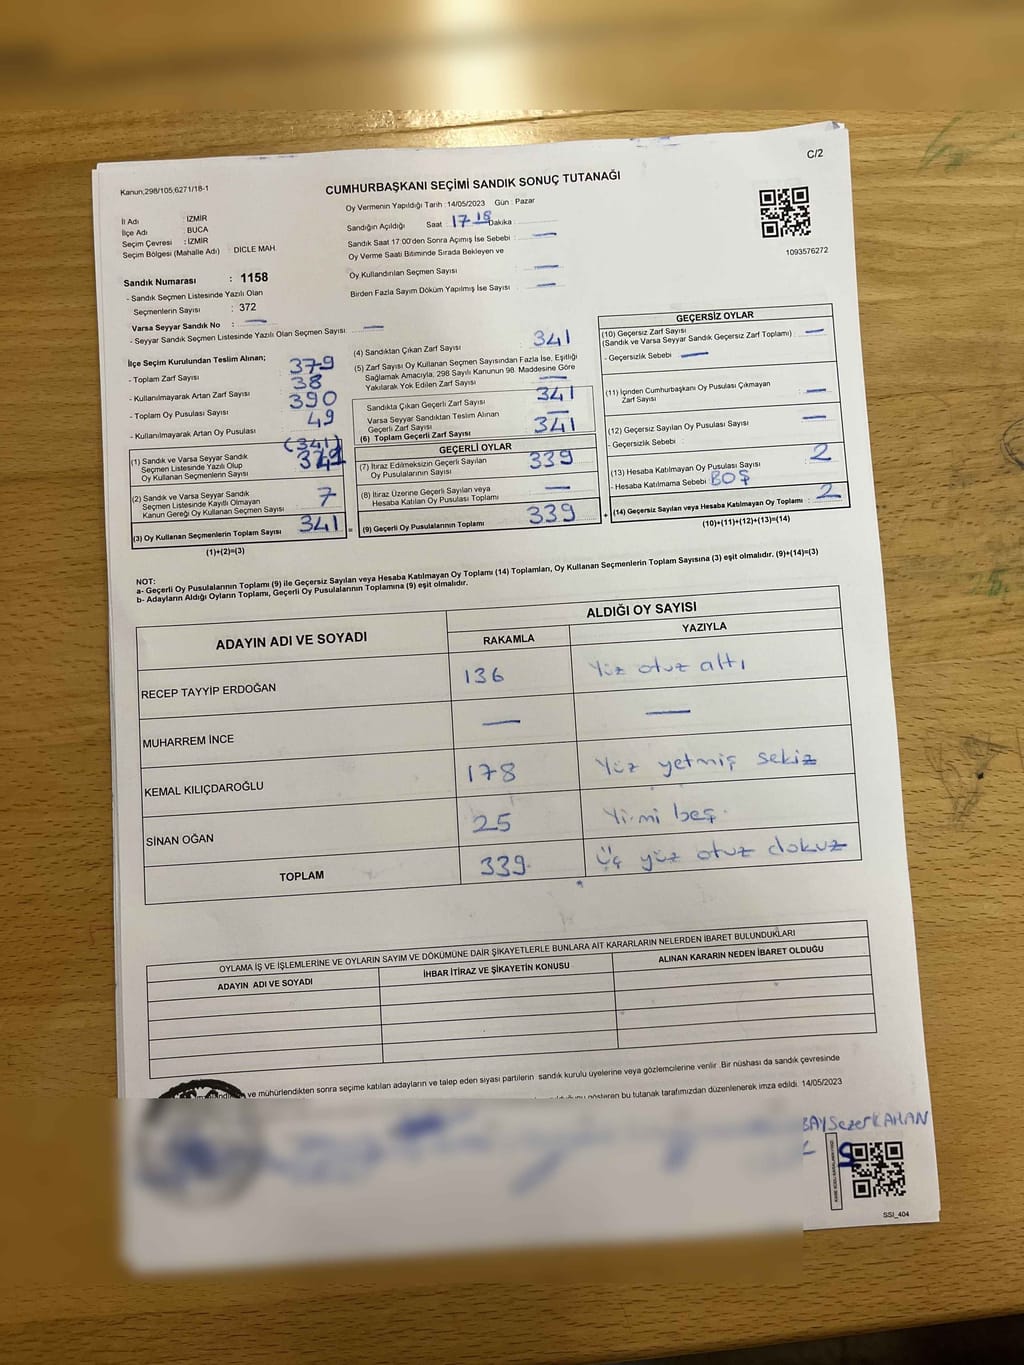 C/2
Kanun;298/105;6271/18-1
CUMHURBAŞKANI SEÇİMİ SANDIK SONUÇ TUTANAĞI
İl Adı : İZMİR
İlçe Adı : BUCA
Seçim Çevresi : İZMİR
Seçim Bölgesi (Mahalle Adı) : DİCLE MAH.
Oy Vermenin Yapıldığı Tarih :14/05/2023 Gün : Pazar
Sandığın Açıldığı Saat 17 15 Dakika :
Sandık Saat 17:00'den Sonra Açımış İse Sebebi : —
Oy Verme Saati Bitiminde Sırada Bekleyen ve
Oy Kullandırılan Seçmen Sayısı —
Birden Fazla Sayım Döküm Yapılmış İse Sayısı : —
1093576272
Sandık Numarası : 1158
- Sandık Seçmen Listesinde Yazılı Olan
Seçmenlerin Sayısı : 372
Varsa Seyyar Sandık No : —
- Seyyar Sandık Seçmen Listesinde Yazılı Olan Seçmen Sayısı: —
İlçe Seçim Kurulundan Teslim Alınan;
- Toplam Zarf Sayısı : 379
- Kullanılmayarak Artan Zarf Sayısı : 38
- Toplam Oy Pusulası Sayısı : 390
- Kullanılmayarak Artan Oy Pusulası : 49
(341)
(1) Sandık ve Varsa Seyyar Sandık
Seçmen Listesinde Yazılı Olup
Oy Kullanan Seçmenlerin Sayısı
(2) Sandık ve Varsa Seyyar Sandık
Seçmen Listesinde Kayıtlı Olmayan
Kanun Gereği Oy Kullanan Seçmen Sayısı : 7
(3) Oy Kullanan Seçmenlerin Toplam Sayısı : 341
(1)+(2)=(3)
(4) Sandıktan Çıkan Zarf Sayısı : 341
(5) Zarf Sayısı Oy Kullanan Seçmen Sayısından Fazla İse, Eşitliği
Sağlamak Amacıyla, 298 Sayılı Kanunun 98. Maddesine Göre
Yakılarak Yok Edilen Zarf Sayısı : —
Sandıkta Çıkan Geçerli Zarf Sayısı : 341
Varsa Seyyar Sandıktan Teslim Alınan
Geçerli Zarf Sayısı : —
(6) Toplam Geçerli Zarf Sayısı : 341
GEÇERLİ OYLAR
(7) İtiraz Edilmeksizin Geçerli Sayılan
Oy Pusulalarının Sayısı : 339
(8) İtiraz Üzerine Geçerli Sayılan veya
Hesaba Katılan Oy Pusulası Toplamı : —
= (9) Geçerli Oy Pusulalarının Toplamı : 339
GEÇERSİZ OYLAR
(10) Geçersiz Zarf Sayısı
(Sandık ve Varsa Seyyar Sandık Geçersiz Zarf Toplamı) : —
- Geçersizlik Sebebi : —
(11) İçinden Cumhurbaşkanı Oy Pusulası Çıkmayan
Zarf Sayısı : —
(12) Geçersiz Sayılan Oy Pusulası Sayısı : —
- Geçersizlik Sebebi :
(13) Hesaba Katılmayan Oy Pusulası Sayısı : 2
- Hesaba Katılmama Sebebi : BOŞ
+ (14) Geçersiz Sayılan veya Hesaba Katılmayan Oy Toplamı : 2
(10)+(11)+(12)+(13)=(14)
NOT:
a- Geçerli Oy Pusulalarının Toplamı (9) ile Geçersiz Sayılan veya Hesaba Katılmayan Oy Toplamı (14) Toplamları, Oy Kullanan Seçmenlerin Toplam Sayısına (3) eşit olmalıdır. (9)+(14)=(3)
b- Adayların Aldığı Oyların Toplamı, Geçerli Oy Pusulalarının Toplamına (9) eşit olmalıdır.
ADAYIN ADI VE SOYADI
ALDIĞI OY SAYISI
RAKAMLA YAZIYLA
RECEP TAYYİP ERDOĞAN 136 Yüz otuz altı
MUHARREM İNCE — —
KEMAL KILIÇDAROĞLU 178 Yüz yetmiş sekiz
SİNAN OĞAN 25 Yirmi beş
TOPLAM 339 Üç yüz otuz dokuz
OYLAMA İŞ VE İŞLEMLERİNE VE OYLARIN SAYIM VE DÖKÜMÜNE DAİR ŞİKAYETLERLE BUNLARA AİT KARARLARIN NELERDEN İBARET BULUNDUKLARI
ADAYIN ADI VE SOYADI İHBAR İTİRAZ VE ŞİKAYETİN KONUSU ALINAN KARARIN NEDEN İBARET OLDUĞU
ve mühürlendikten sonra seçime katılan adayların ve talep eden siyasi partilerin sandık kurulu üyelerine veya gözlemcilerine verilir. Bir nüshası da sandık çevresinde
gösteren bu tutanak tarafımızdan düzenlenerek imza edildi. 14/05/2023
Sezer KAHAN
SSİ_404